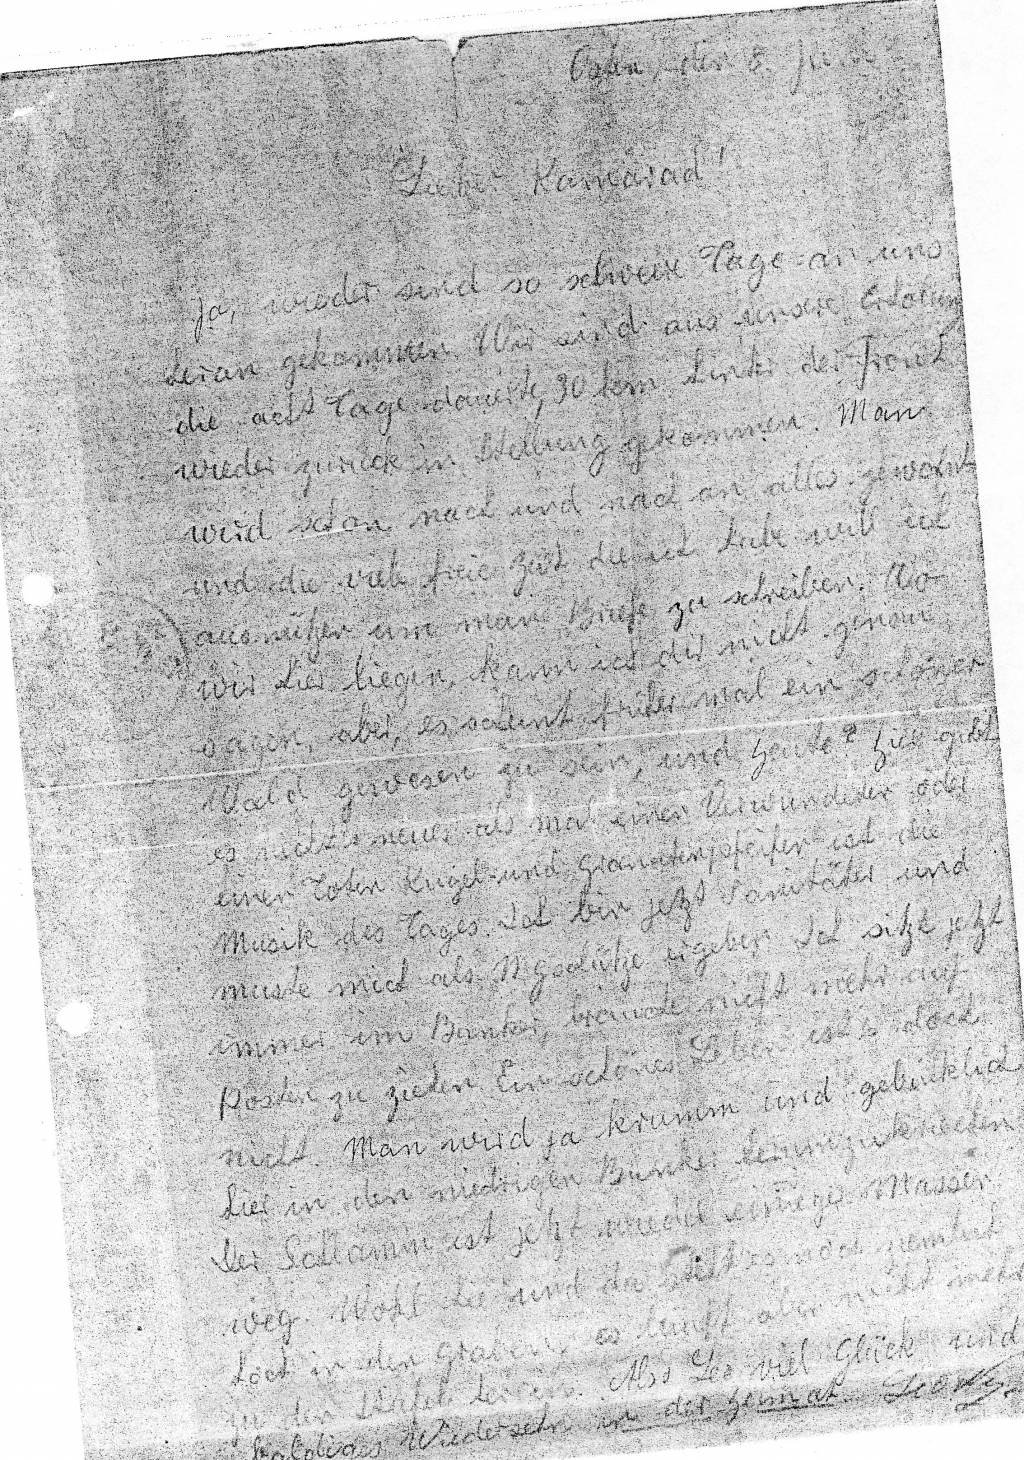 den 8. Juni
Lieber Kamerad!
Ja, wieder sind so schwere Tage an uns
heran gekommen. Wir sind aus unsere Erholung
die acht Tage dauerte, 30 km hinter der Front
wieder zurück in Stellung gekommen. Man
wird schon nach und nach an alles gewohnt
und die viele freie Zeit die ich habe will ich
ausnützen um man Briefe zu schreiben. Wo
wir hier liegen, kann ich dir nicht genau
sagen, aber, es scheint früher mal ein schöner
Wald gewesen zu sein, und heute? Hier gibt
es nicht's neues als mal einen Verwundeter oder
einen Toten Kugel und Granatenpfeifen ist die
Musik des Tages. Ich bin jetzt Sanitäter und
muste mich als Mgschütze ergeben. Ich sitze jetzt
immer im Bunker, brauch nicht mehr auf
Posten zu ziehen. Ein schönes Leben ist's doch
nicht. Man wird ja krumm und gebücklich
hier in den niedrigen Bunker herumzukriechen
Der Schlamm ist jetzt wieder einiger Massen
weg. Wohl hie und da steht es noch ziemlich
hoch in den Graben, es läuft aber nicht mehr
zu den Stiefel herein. Also Leo viel Glück und
baldiges Wiedersehn in der Heimat.